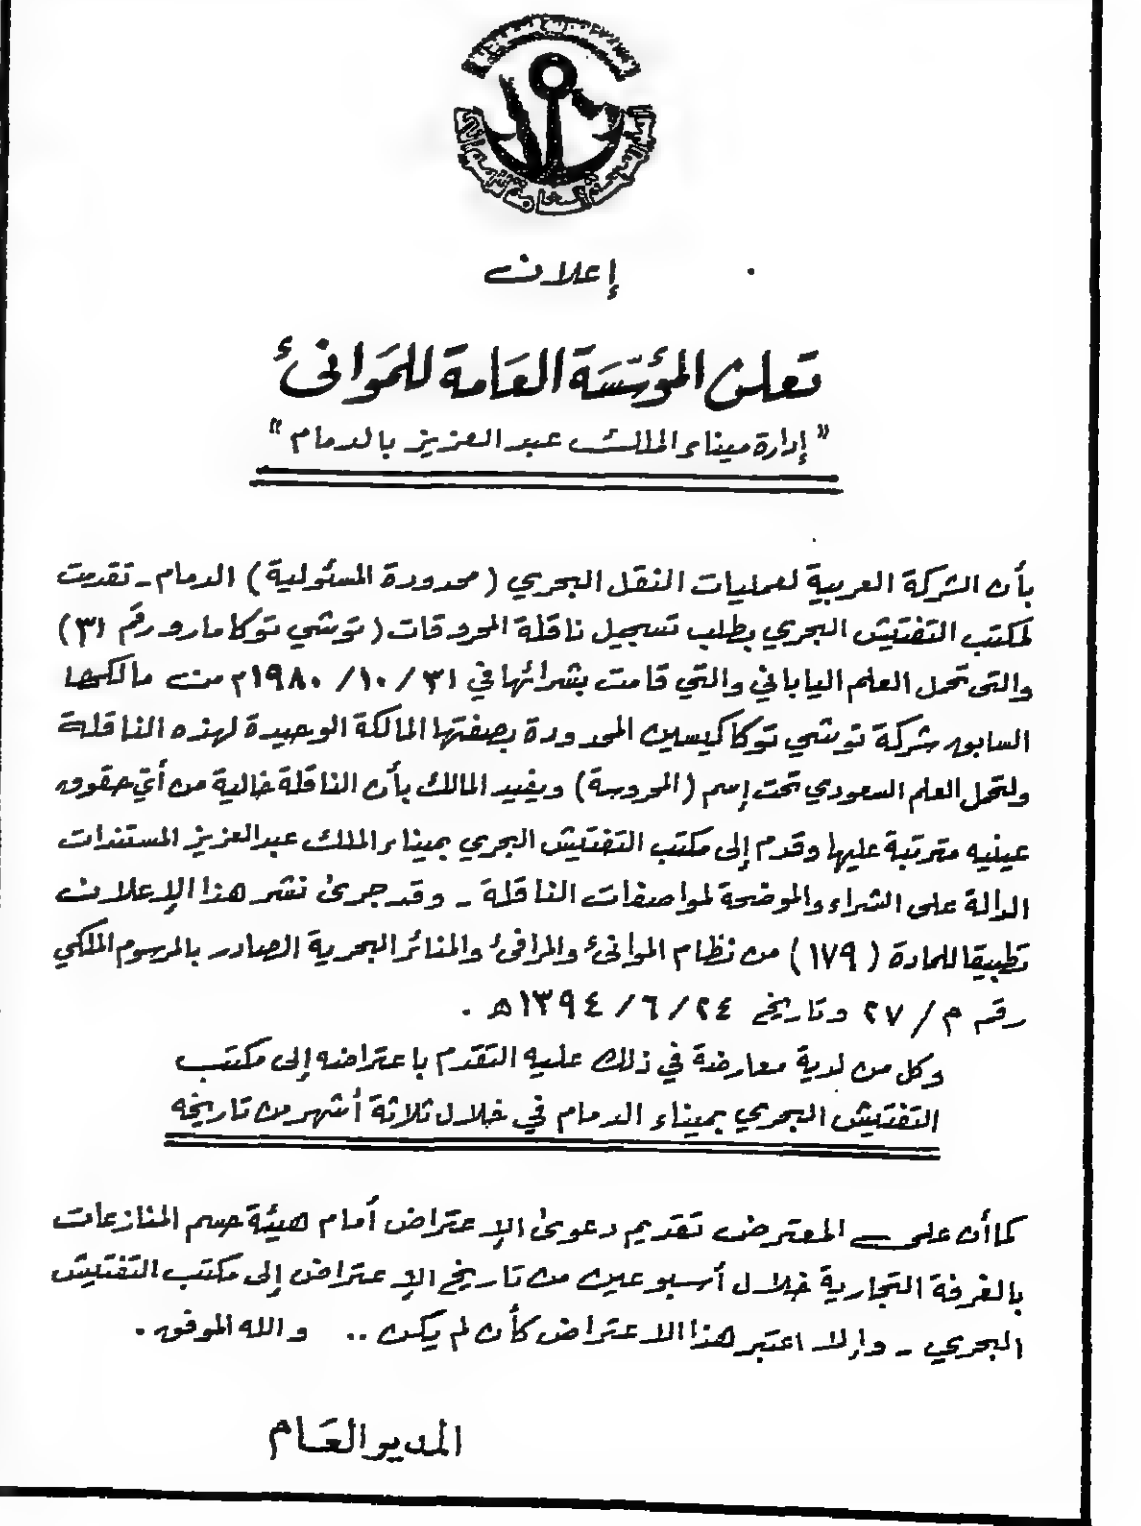 إعلان
تعلن المؤسسة العامة للموانئ
"إدارة ميناء الملك عبد العزيز بالدمام"
بأن الشركة العربية لعمليات النقل البحري (محدودة المسئولية) الدمام - تقدمت
لمكتب التفتيش البحري بطلب تسجيل ناقلة المحروقات (توشي توكا مارو رقم ٣١)
والتى تحمل العلم الياباني والتي قامت بشرائها في ٣١/١٠/١٩٨٠م من مالكها
السابق شركة توشي توكا كيسين المحدودة بصفتها المالكة الوحيدة لهذه الناقلة
ولتحمل العلم السعودي تحت إسم (المحروسة) ويفيد المالك بأن الناقلة خالية من أي حقوق
عينيه مترتبة عليها وقدم إلى مكتب التفتيش البحري بميناء الملك عبدالعزيز المستندات
الدالة على الشراء والموضحة لمواصفات الناقلة - وقد جرى نشر هذا الإعلان
تطبيقا للمادة (١٧٩) من نظام الموانئ والمرافئ والمنائر البحرية الصادر بالمرسوم الملكي
رقم م/٢٧ وتاريخ ٢٤/٦/١٣٩٤هـ .
وكل من لدية معارضة في ذلك عليه التقدم باعتراضه إلى مكتب
التفتيش البحري بميناء الدمام في خلال ثلاثة أشهر من تاريخه
كما أن على المعترض تقديم دعوى الإعتراض أمام هيئة حسم المنازعات
بالغرفة التجارية خلال أسبوعين من تاريخ الإعتراض إلى مكتب التفتيش
البحري - وإلا اعتبر هذا الاعتراض كأن لم يكن .. والله الموفق .
المدير العام